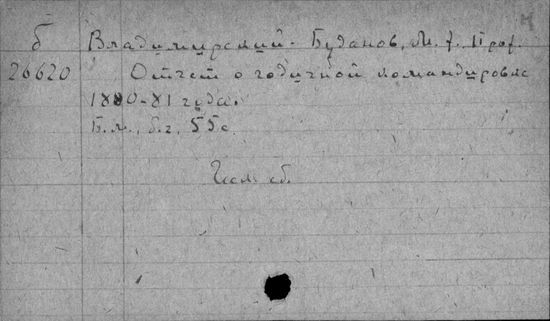 б Владимирский-Буданов, М. Ф. проф.
26620 Отчет о годичной командировке
1880-81 года.
Б. м., б. г., 55 с.
сб.